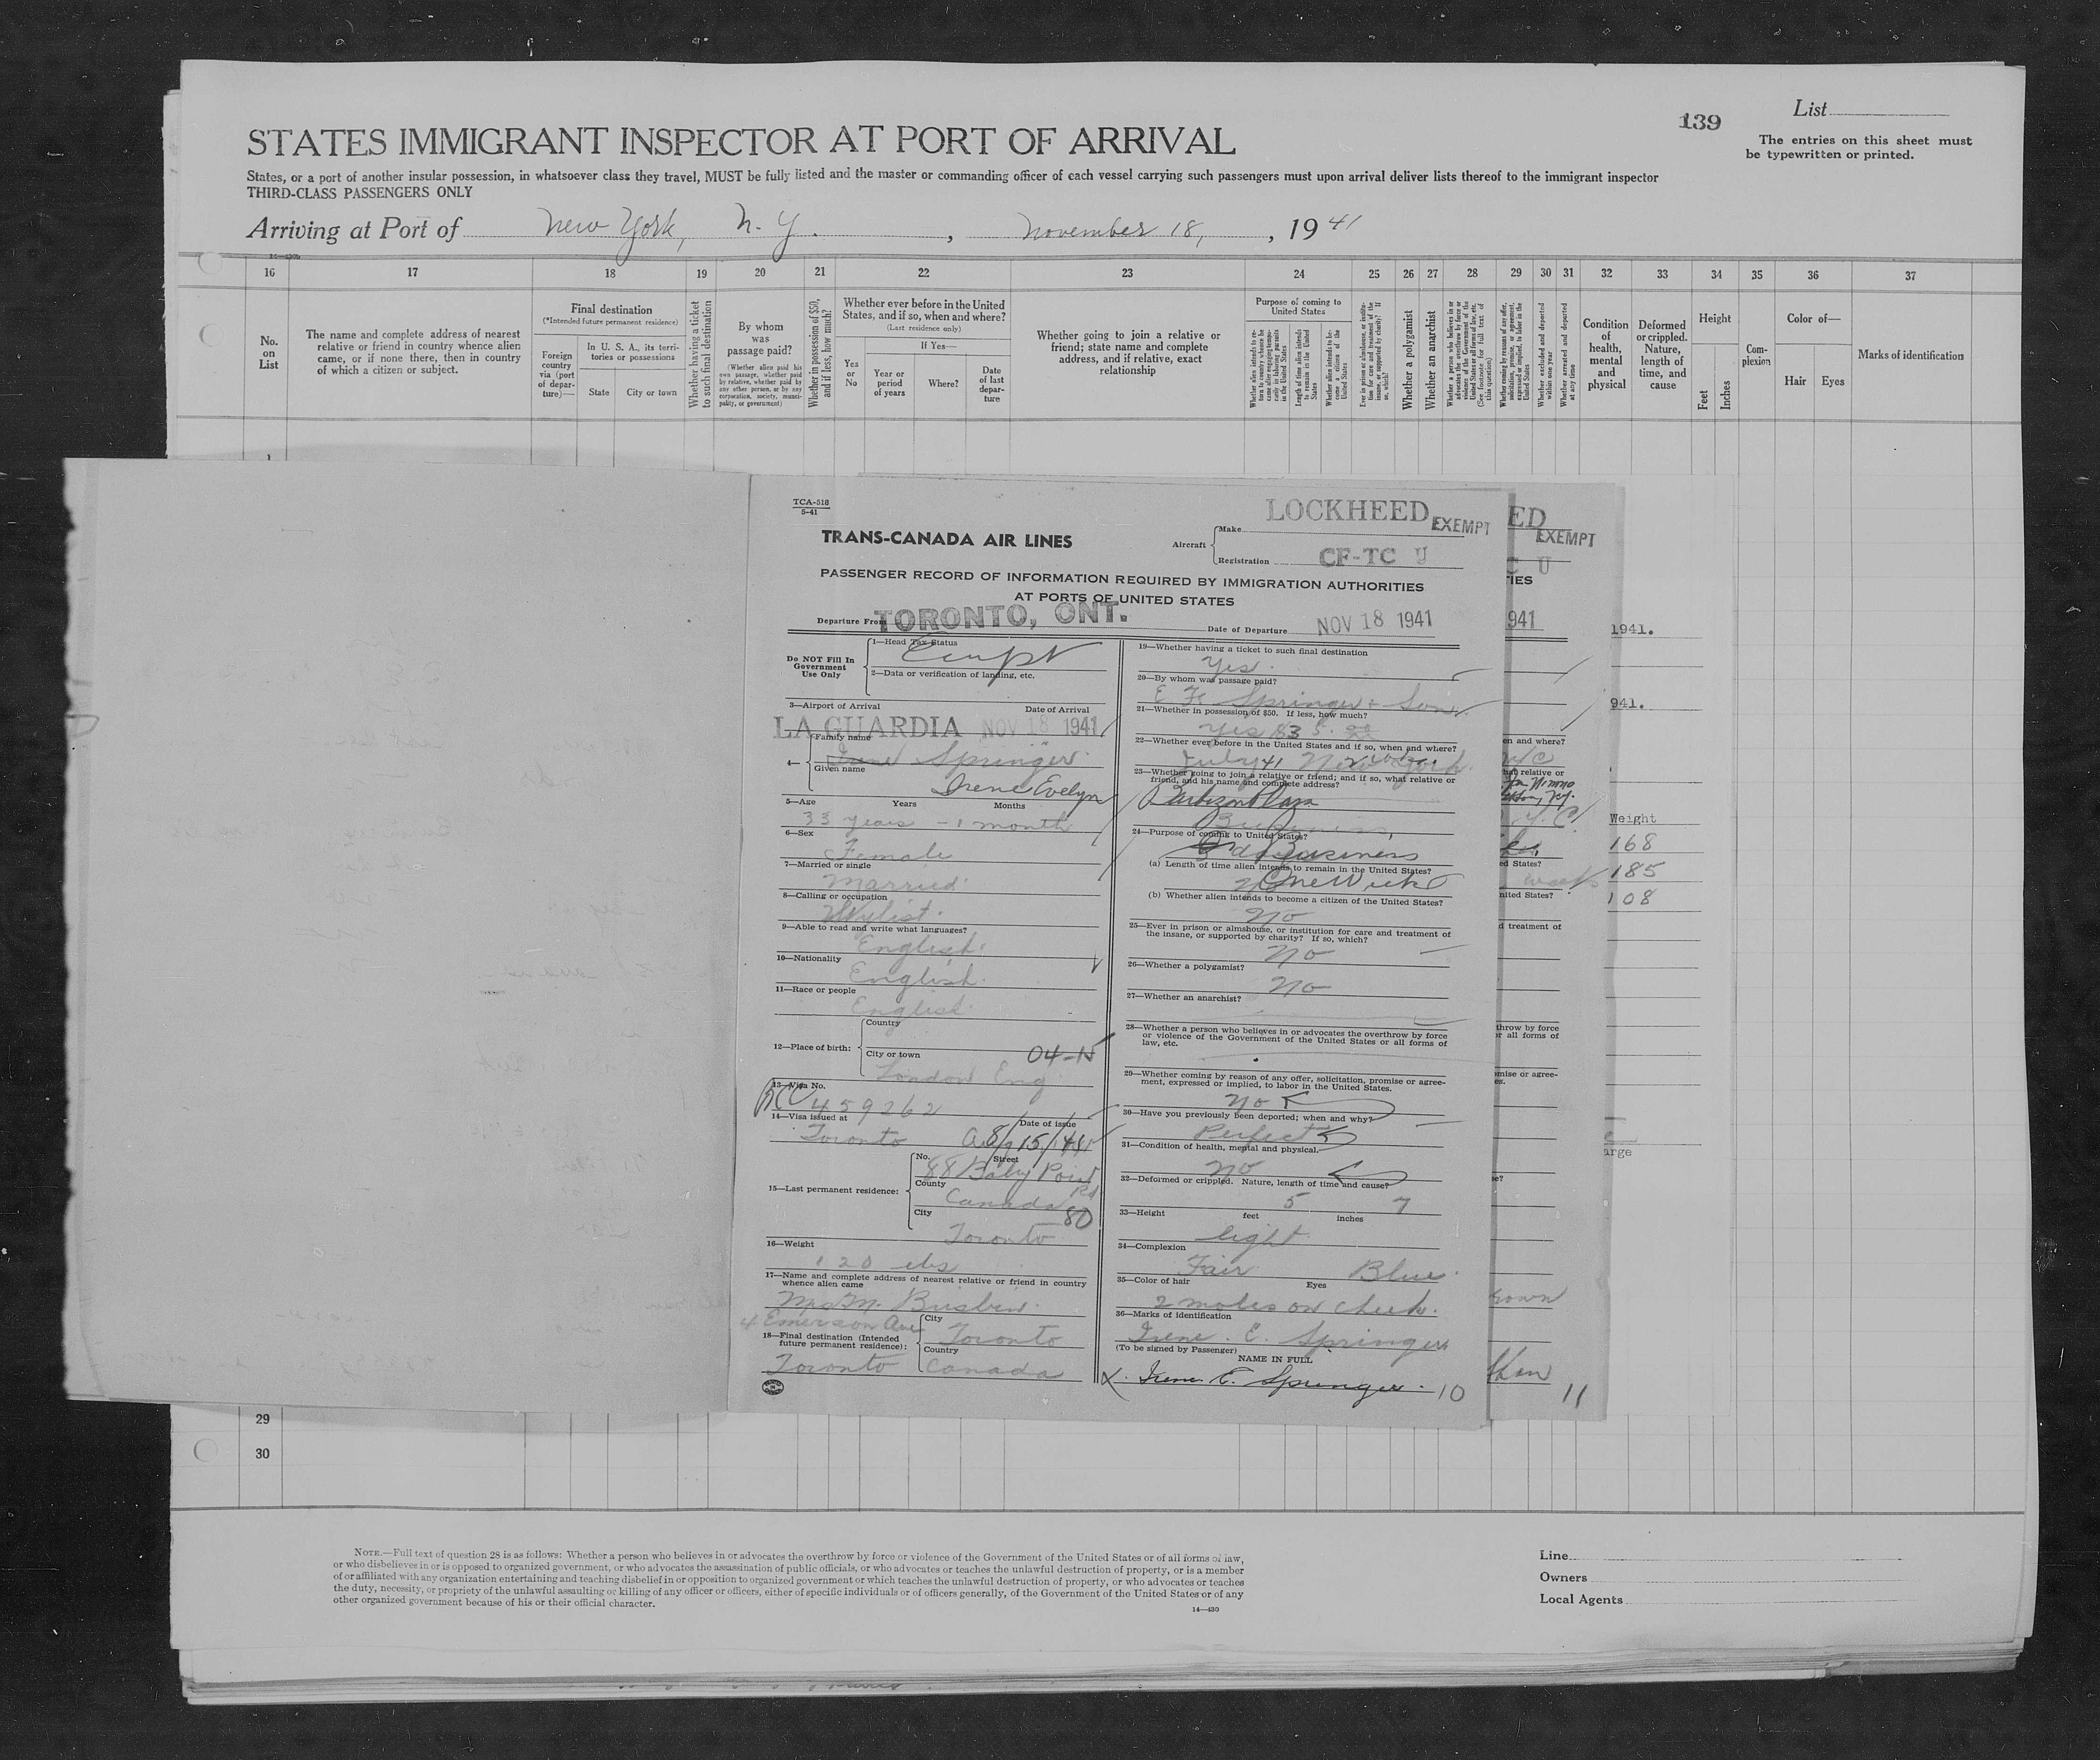 139
List
The entries on this sheet must
be typewritten or printed.
STATES IMMIGRANT INSPECTOR AT PORT OF ARRIVAL
States, or a port of another insular possession, in whatsoever class they travel, MUST be fully listed and the master or commanding officer of each vessel carrying such passengers must upon arrival deliver lists thereof to the immigrant inspector
THIRD-CLASS PASSENGERS ONLY
Arriving at Port of New York, N. Y. , November 18, , 19 41
16 17 18 19 20 21 22 23 24 25 26 27 28 29 30 31 32 33 34 35 36 37
No. on List
The name and complete address of nearest
relative or friend in country whence alien
came, or if none there, then in country
of which a citizen or subject.
Final destination
(*Intended future permanent residence)
Foreign country via (port of departure)—
In U. S. A., its territories or possessions
State
City or town
Whether having a ticket to such final destination
By whom was passage paid?
(Whether alien paid his own passage, whether paid by relative, whether paid by any other person, or by any corporation, society, municipality, or government)
Whether in possession of $50, and if less, how much?
Whether ever before in the United
States, and if so, when and where?
(Last residence only)
Yes or No
If Yes—
Year or period of years
Where?
Date of last departure
Whether going to join a relative or
friend; state name and complete
address, and if relative, exact
relationship
Purpose of coming to
United States
Length of time alien intends to remain in the United States
Whether alien intends to become a citizen of the United States
Whether a polygamist
Whether an anarchist
Whether excluded and deported within one year
Whether arrested and deported at any time
Condition of health, mental and physical
Deformed or crippled. Nature, length of time, and cause
Height
Feet
Inches
Complexion
Color of—
Hair
Eyes
Marks of identification
TCA-518
5-41
TRANS-CANADA AIR LINES
Aircraft
Make LOCKHEED EXEMPT
Registration CF-TC U
PASSENGER RECORD OF INFORMATION REQUIRED BY IMMIGRATION AUTHORITIES
AT PORTS OF UNITED STATES
Departure From TORONTO, ONT.
Date of Departure NOV 18 1941
Do NOT FILL IN
Government
Use Only
1—Head Tax Status
2—Data or verification of landing, etc.
3—Airport of Arrival
Date of Arrival
LA GUARDIA NOV 18 1941
4—
Family name
Irene Springer
Given name
Irene Evelyn
5—Age Years Months
33 years - 1 month
6—Sex
Female
7—Married or single
Married
8—Calling or occupation
Stylist.
9—Able to read and write what languages?
English.
10—Nationality
English.
11—Race or people
English.
12—Place of birth:
Country
City or town
04-15
London Eng
13—Visa No.
459262
14—Visa issued at
Date of issue
Toronto
15—Last permanent residence:
No. Street
88 Baby Point Rd
County
Canada
80
City
Toronto
16—Weight
120 lbs
17—Name and complete address of nearest relative or friend in country
whence alien came
Mrs M. Brisbin.
4 Emerson Ave
18—Final destination (Intended
future permanent residence):
City
Toronto
Country
Toronto Canada
19—Whether having a ticket to such final destination
Yes.
20—By whom was passage paid?
E F. Springer + Son.
21—Whether in possession of $50. If less, how much?
22—Whether ever before in the United States and if so, when and where?
July 41 New York
23—Whether going to join a relative or friend; and if so, what relative or
friend, and his name and complete address?
Barbizon Plaza
24—Purpose of coming to United States?
Business
(a) Length of time alien intends to remain in the United States?
One Week
(b) Whether alien intends to become a citizen of the United States?
No
25—Ever in prison or almshouse, or institution for care and treatment of
the insane, or supported by charity? If so, which?
No
26—Whether a polygamist?
No
27—Whether an anarchist?
28—Whether a person who believes in or advocates the overthrow by force
or violence of the Government of the United States or all forms of
law, etc.
29—Whether coming by reason of any offer, solicitation, promise or agree-
ment, expressed or implied, to labor in the United States.
No
30—Have you previously been deported; when and why?
Perfect
31—Condition of health, mental and physical.
No
32—Deformed or crippled. Nature, length of time and cause?
5 7
33—Height feet inches
light
34—Complexion
Fair Blue.
35—Color of hair Eyes
2 moles on cheek.
36—Marks of identification
Irene. E. Springer
(To be signed by Passenger)
NAME IN FULL
X. Irene E. Springer. 10
ED
EXEMPT
C U
TIES
941
1941.
941.
Weight
168
185
108
11
29
30
NOTE.—Full text of question 28 is as follows: Whether a person who believes in or advocates the overthrow by force or violence of the Government of the United States or of all forms of law,
or who disbelieves in or is opposed to organized government, or who advocates the assassination of public officials, or who advocates or teaches the unlawful destruction of property, or is a member
of or affiliated with any organization entertaining and teaching disbelief in or opposition to organized government or which teaches the unlawful destruction of property, or who advocates or teaches
the duty, necessity, or propriety of the unlawful assaulting or killing of any officer or officers, either of specific individuals or of officers generally, of the Government of the United States or of any
other organized government because of his or their official character.
14—430
Line
Owners
Local Agents